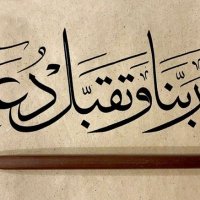 ربّنا وتقبل دُعَ